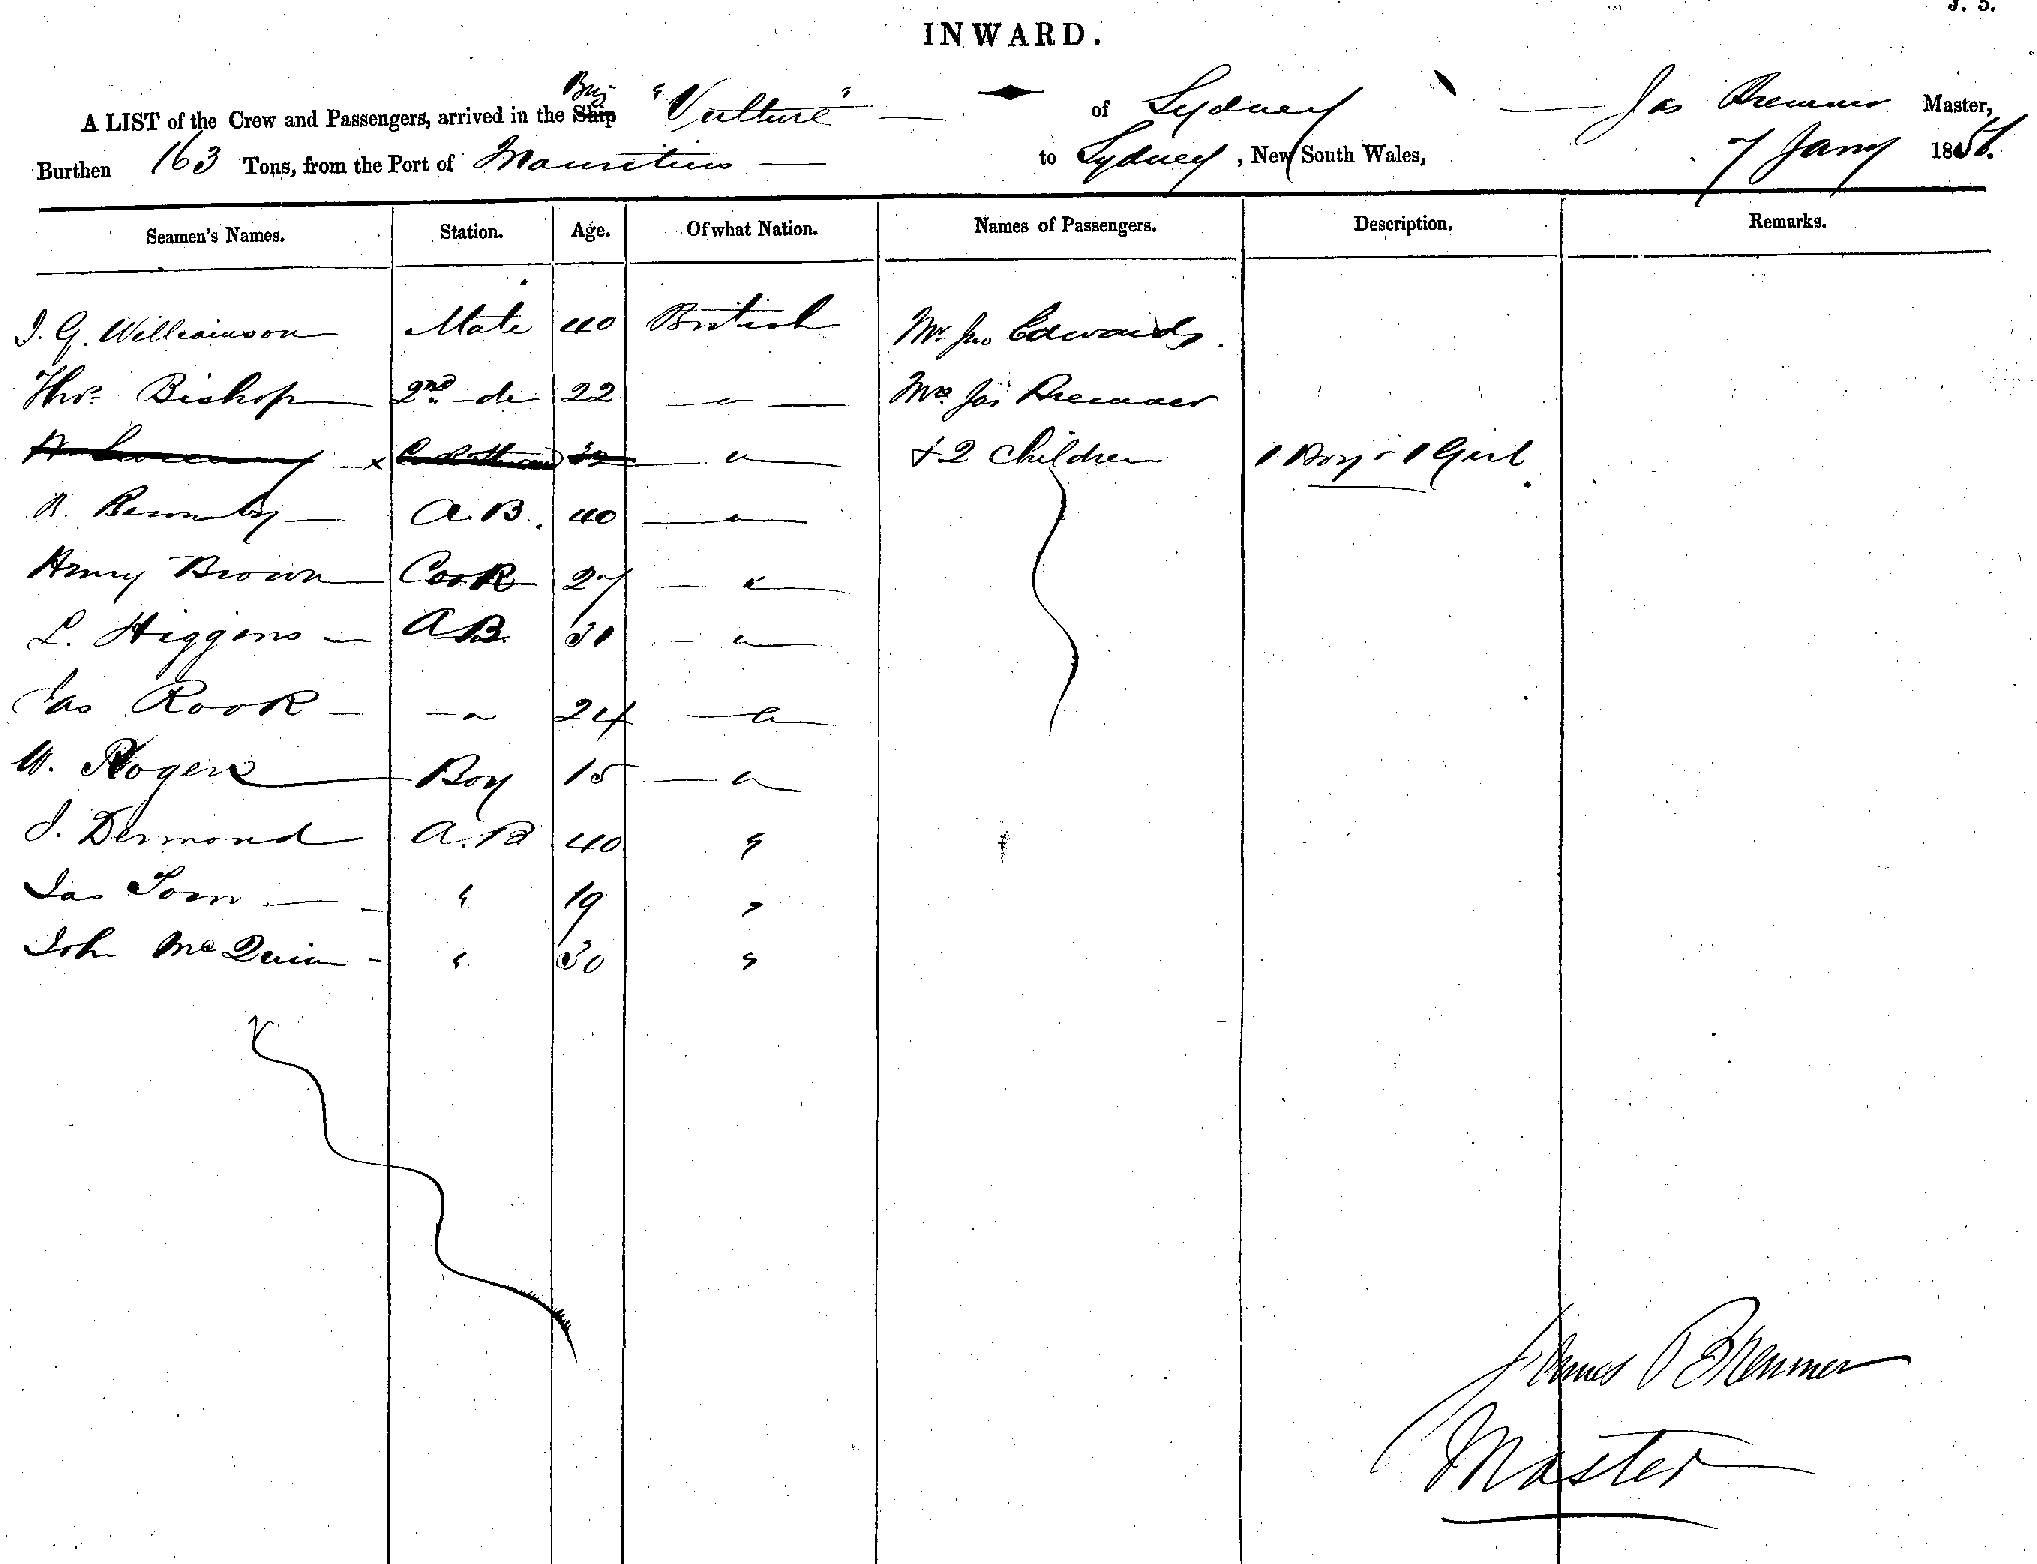 J. 5.
INWARD.
A LIST of the Crew and Passengers, arrived in the Ship Brig "Vulture" of Sydney Jas Bremner Master,
Burthen 163 Tons, from the Port of Mauritius to Sydney, New South Wales, 7 Jany 185
Seamen's Names. Station. Age. Of what Nation. Names of Passengers. Description. Remarks.
J. G. Williamson Mate 40 British Mr. Jno Edwards.
Thos. Bishop 2nd do 22 " Mrs. Jas Bremner
" & 2 Children 1 Boy 1 Girl
A.B. 40 "
Henry Brown Cook 27 "
L. Higgins A.B. 31 "
Jas Rook " 24 "
W. Rogers Boy 15 "
J. Dermond A.B 40 "
Jas Tom " 19 "
John McQuinn " 30 "
James Bremner
Master